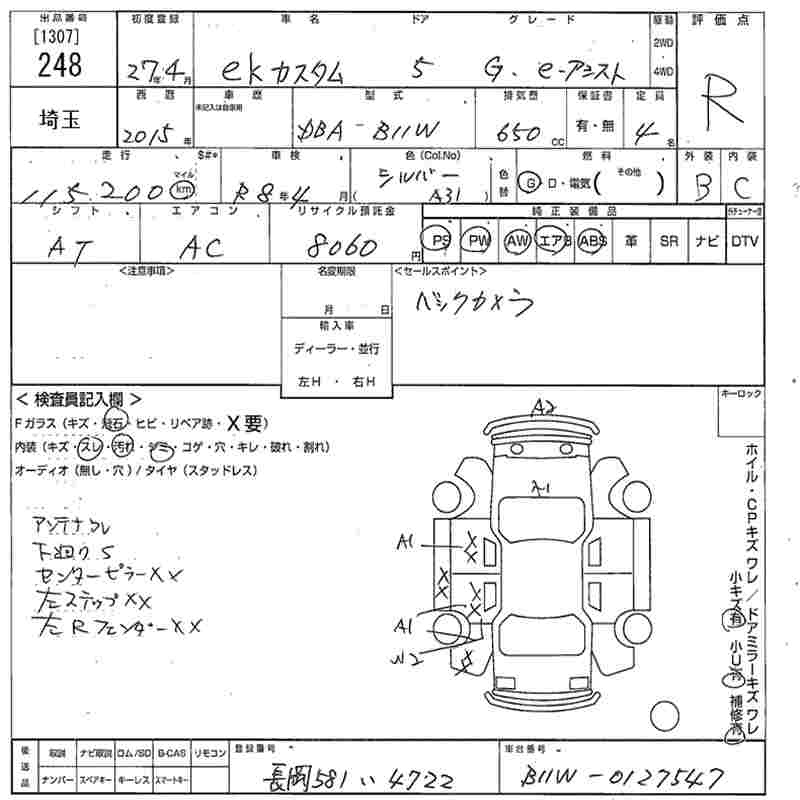 出品番号 初度登録 車名 ドア グレード 駆動 評価点
[1307]
248 27年4月 ekカスタム 5 G・e-アシスト 2WD・4WD R
埼玉 西暦 車歴 型式 排気量 保証書 定員
未記入は自家用
2015年 DBA-B11W 650cc 有・無 4名
走行 $#* 車検 色(Col.No) 燃料 外装 内装
115,200 マイル km R8年4月 シルバー (A31) 色替 G・D・電気( その他 ) B C
シフト エアコン リサイクル預託金 純正装備品 地デジチューナー付
AT AC 8060円 PS PW AW エアB ABS 革 SR ナビ DTV
<注意事項> 名変期限 <セールスポイント>
月 日 バックカメラ
輸入車
ディーラー・並行
左H・右H
< 検査員記入欄 > キーロック
Fガラス(キズ・飛石・ヒビ・リペア跡・X要)
内装(キズ・スレ・汚れ・シミ・コゲ・穴・キレ・破れ・割れ)
オーディオ(無し・穴)/タイヤ(スタッドレス)
A2
A1
アンテナ
下廻りS
センターピラーXX
左ステップXX
左RフェンダーXX
A1
X
X
X
X
X
X
A1
W2
X
ホイル・CPキズ ワレ/ドアミラーキズ ワレ
小キズ有 小U有 補修有
後送品 取説 ナビ取説 ロム/SD B-CAS リモコン 登録番号 車台番号
ナンバー スペアキー キーレス スマートキー 長岡581い4722 B11W-0127547